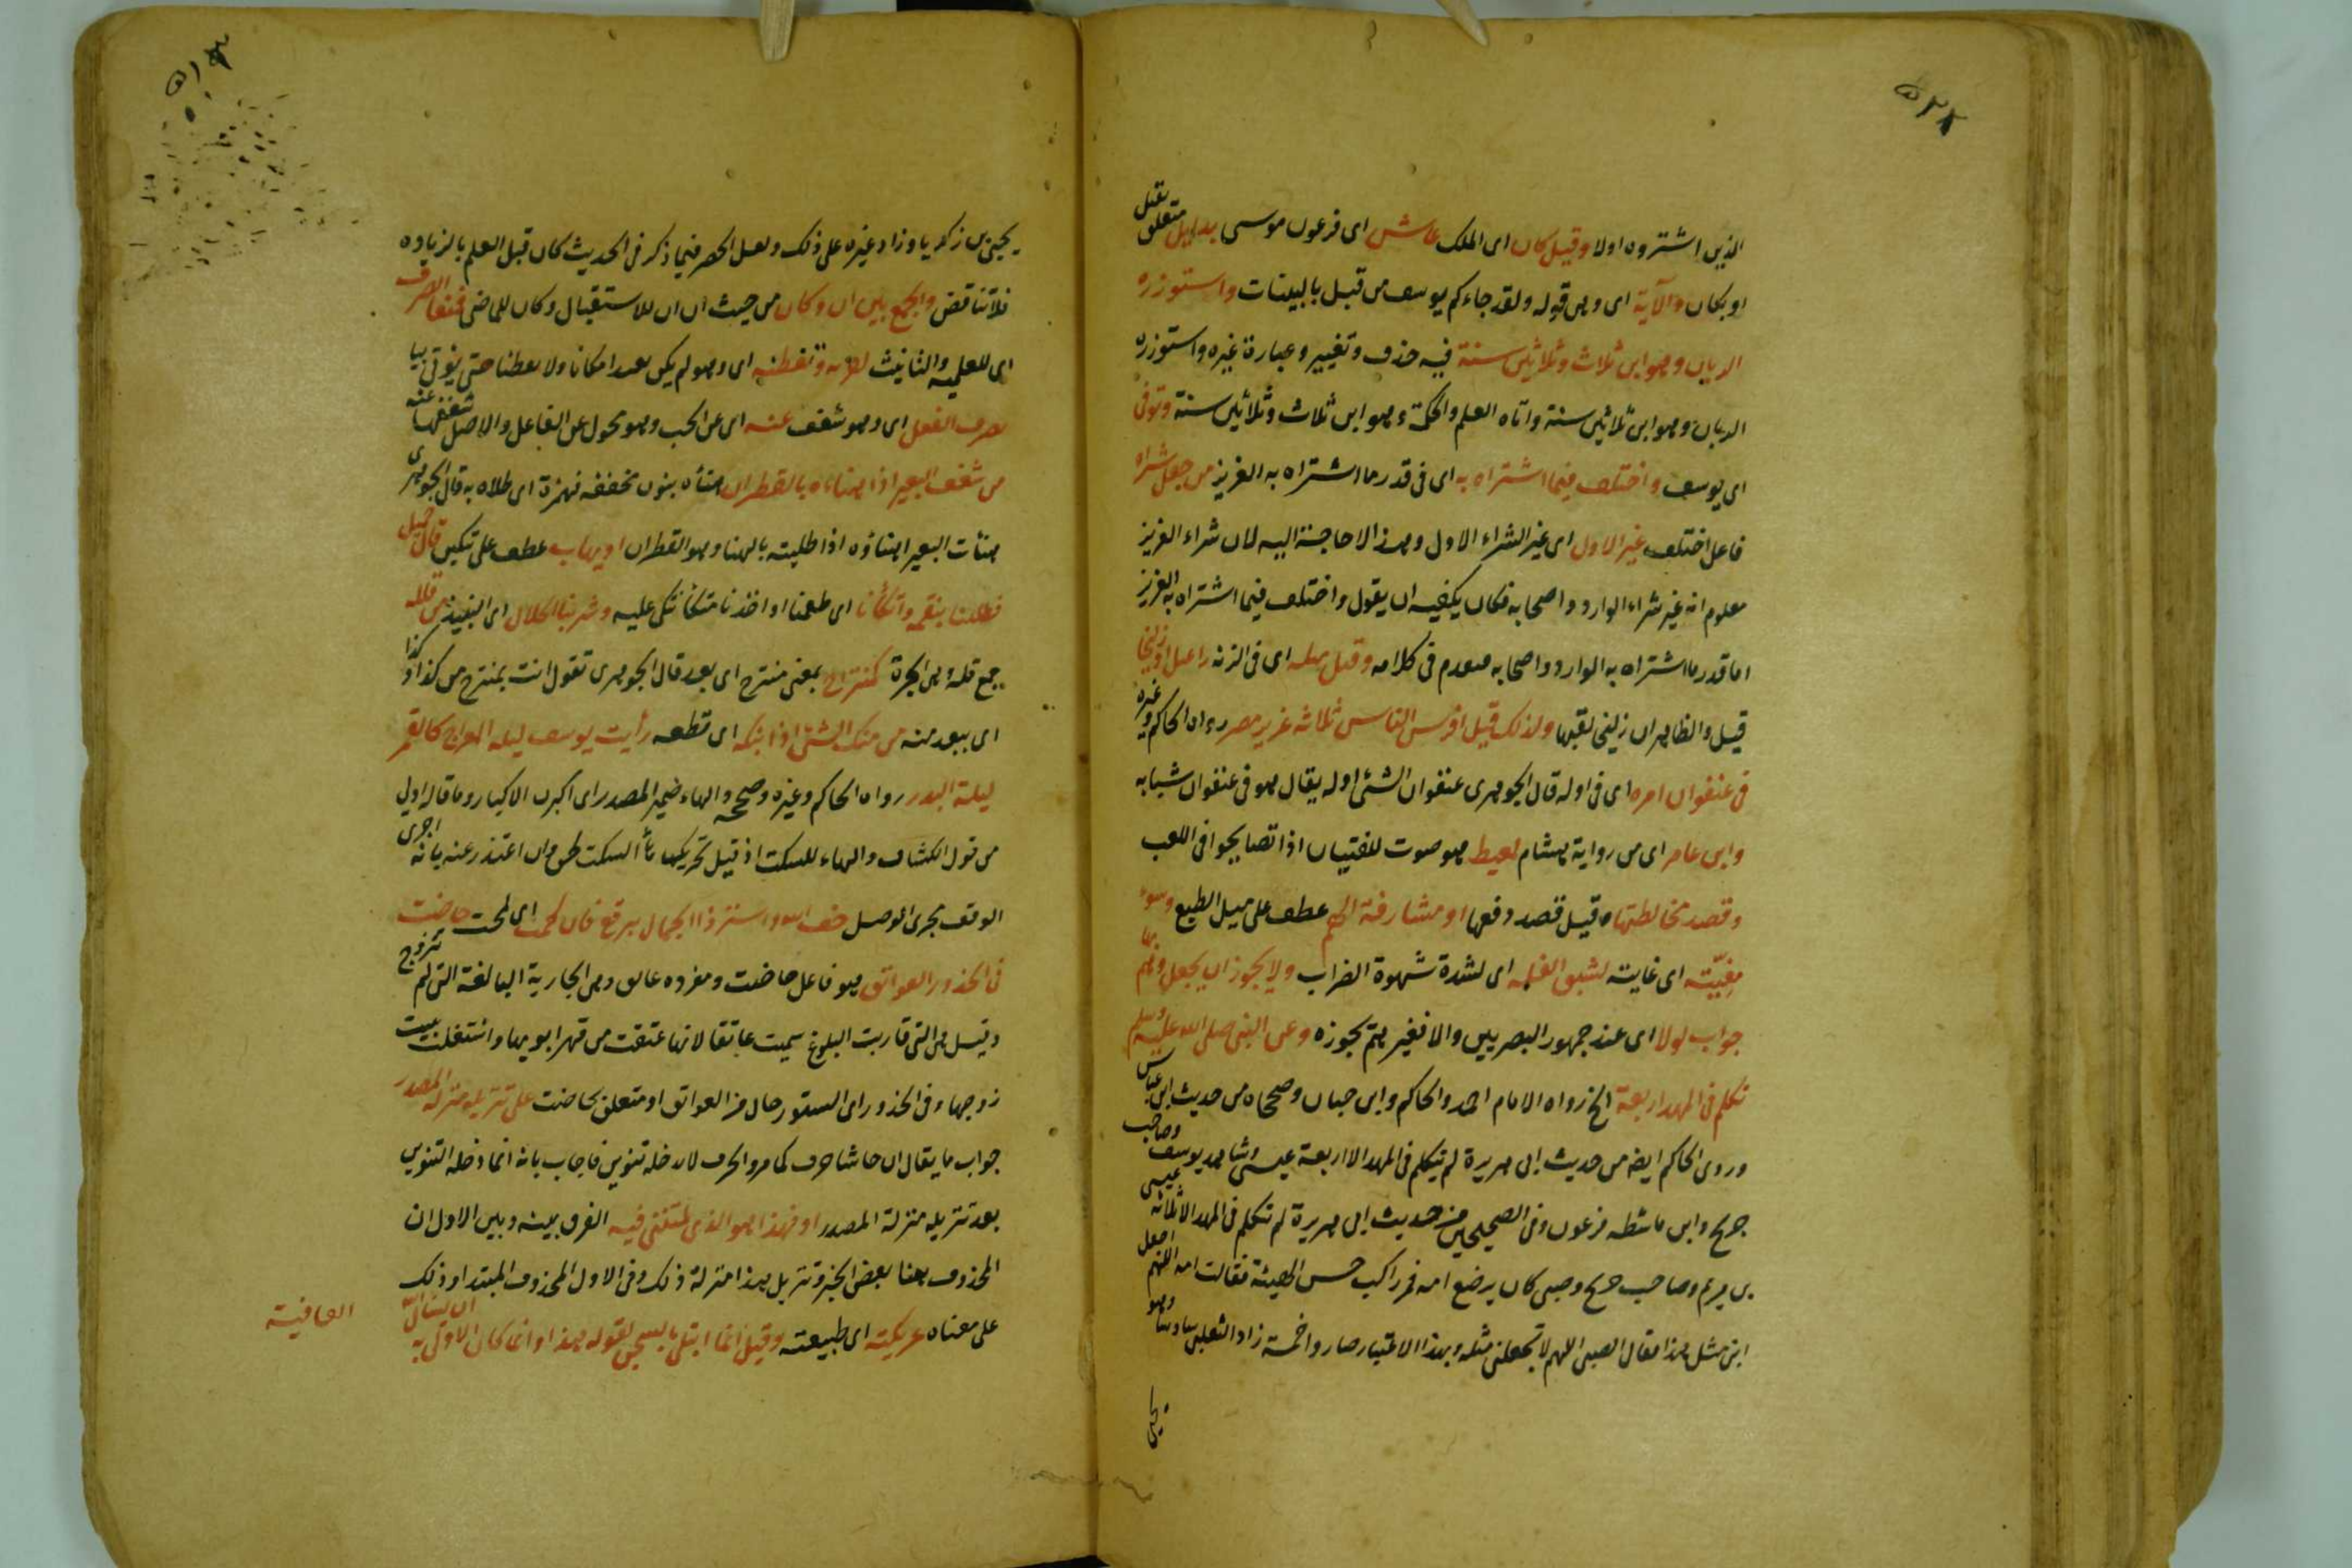 الذين اشتروه اولا وقيل كان اى الملك عاش اى فرعون موسى بدليل متعلق بقيل
او بكان والآية اى وهى قوله ولقد جاءكم يوسف من قبل بالبينات واستوزره
الريان وهو ابن ثلاث وثلاثين سنة فيه حذف وتغيير وعبارة غيره واستوزره
الريان وهو ابن ثلاثين سنة واتاه العلم والحكمة وهو ابن ثلاث وثلاثين سنة وتوفى
اى يوسف واختلف فيما اشتراه به اى فى قدر ما اشتراه به العزيز من جعل شراه
فاعل اختلف غير الاول اى غير الشراء الاول وهذا لا حاجة اليه لان شراء العزيز
معلوم انه غير شراء الوارد واصحابه فكان يكفيه ان يقول واختلف فيما اشتراه به العزيز
اما قدر ما اشتراه به الوارد واصحابه فتقدم فى كلامه وقيل مثله اى فى الزنة راعيل او زليخا
قيل والظاهر ان زليخى لقبها ولذلك قيل افرس الناس ثلاثة عزيز مصر رواه الحاكم وغيره
فى عنفوان امره اى فى اوله قال الجوهرى عنفوان الشئ اوله يقال هو فى عنفوان شبابه
وابن عامر اى من رواية هشام لعيط هو صوت للفتيان اذا تصايحوا فى اللعب
وقصد مخالطتها قيل قصد دفعها او مشارفة الهم عطف على ميل الطبع وسوء
مغبّته اى غايته لشبق الغلمة اى لشدة شهوة الضراب ولا يجوز ان يجعل وهم بها
جواب لولا اى عند جمهور البصريين والا فغيرهم يجوزه وعن النبى صلى الله عليه وسلم
تكلم فى المهد اربعة الخ رواه الامام احمد والحاكم وابن حبان وصححاه من حديث ابن عباس
وروى الحاكم ايضا من حديث ابى هريرة لم يتكلم فى المهد الا اربعة عيسى وشاهد يوسف وصاحب
جريج وابن ماشطة فرعون وفى الصحيحين من حديث ابى هريرة لم تتكلم فى المهد الا ثلاثة عيسى
بن مريم وصاحب جريج وصبى كان يرضع امه فمر راكب حسن الهيئة فقالت امه اللهم اجعل
ابنى مثل هذا فقال الصبى اللهم لا تجعلنى مثله وبهذا الاعتبار صاروا خمسة زاد الثعلبى سادسا وهو
يحيى
يحيى بن زكريا وزاد غيره على ذلك ولعل الحصر فيما ذكر فى الحديث كان قبل العلم بالزيادة
فلا تناقض والجمع بين ان وكان من حيث ان ان للاستقبال وكان للماضى فمنعا الصرف
اى للعلمية والتانيث
لصرف الفعل اى وهو شغف عنه اى عن الحب وهو محول عن الفاعل والاصل شغفها عنه
من شغف البعير اذا هنأه بالقطران هنأه بنون مخففة فهمزة اى طلاه به قال الجوهرى
هنأت البعير اهنأه اذا طليته بالهنا وهو القطران او يهاب عطف على تتكين قال جميل
فظللنا بنعمة واتكأنا اى طعمنا او اخذنا متكأ نتكى عليه وشربنا الحلال اى النبيذ من قلله
جمع قلة وهى الجرة كمنتزاح بمعنى منتزح اى بعد قال الجوهرى تقول انت بمنتزح من كذا او كذا
اى ببعد منه من متك الشئ اذا بتكه اى قطعه رأيت يوسف ليلة المعراج كالقمر
ليلة البدر رواه الحاكم وغيره وصححه والهاء ضمير المصدر اى اكبرن الاكبار وما قاله اولى
من قول الكشاف والهاء للسكت اذ قيل تحريكها هاء السكت لحن وان اعتذر عنه بانه اجرى
الوقف مجرى الوصل خف الله واستر ذا الجمال ببرقع فان لحت اى لمحت حاضت
فى الخدور العواتق هو فاعل حاضت ومفرده عاتق وهى الجارية البالغة التى لم تتزوج
وقيل هى التى قاربت البلوغ سميت عاتقا لانها عتقت من قهر ابويها واشتغلت ببيت
زوجها وفى الخدور اى الستور حال من العواتق او متعلق بحاضت على تنزيله منزلة المصدر
جواب ما يقال ان حاشا حرف كما مر والحرف لا يدخله تنوين فاجاب بانه انما دخله التنوين
بعد تنزيله منزلة المصدر او فهذا هو الذى لمتننى فيه الفرق بينه وبين الاول ان
المحذوف هنا بعض الخبر وتنزيل هذا منزلة ذلك وفى الاول المحذوف المبتدا وذلك
على معناه عريكته اى طبيعته وقيل انما ابتلى بالسجن لقوله هذا وانما كان الاولى به ان يسأل الله
العافية